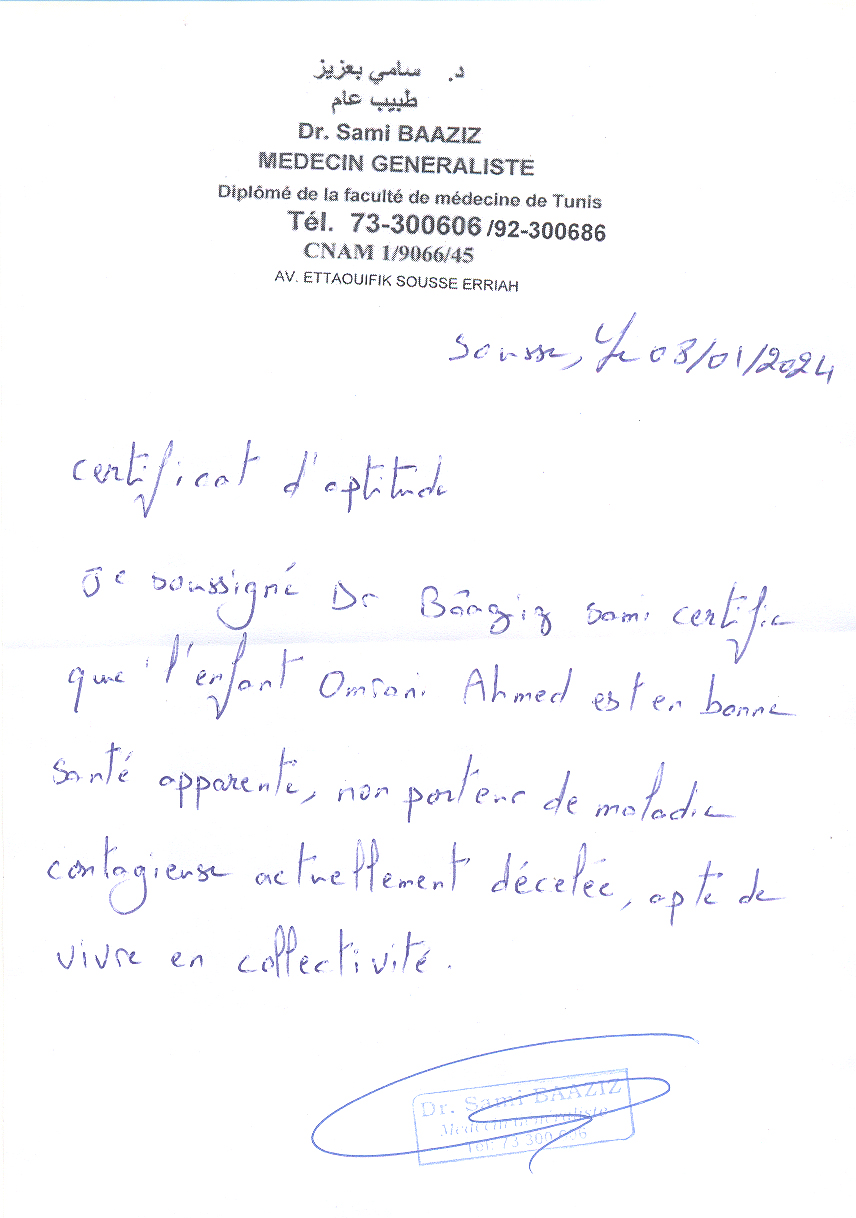 د. سامي بعزيز
طبيب عام
Dr. Sami BAAZIZ
MEDECIN GENERALISTE
Diplômé de la faculté de médecine de Tunis
Tél. 73-300606 /92-300686
CNAM 1/9066/45
AV. ETTAOUIFIK SOUSSE ERRIAH
Sousse, le 03/01/2024
certificat d'aptitude
Je soussigné Dr Bâaziz sami certifie
que l'enfant Omrani Ahmed est en bonne
santé apparente, non porteur de maladie
contagieuse actuellement décelée, apte de
vivre en collectivité.
Dr. Sami BAAZIZ
Médecin Généraliste
Tél: 73 300 606